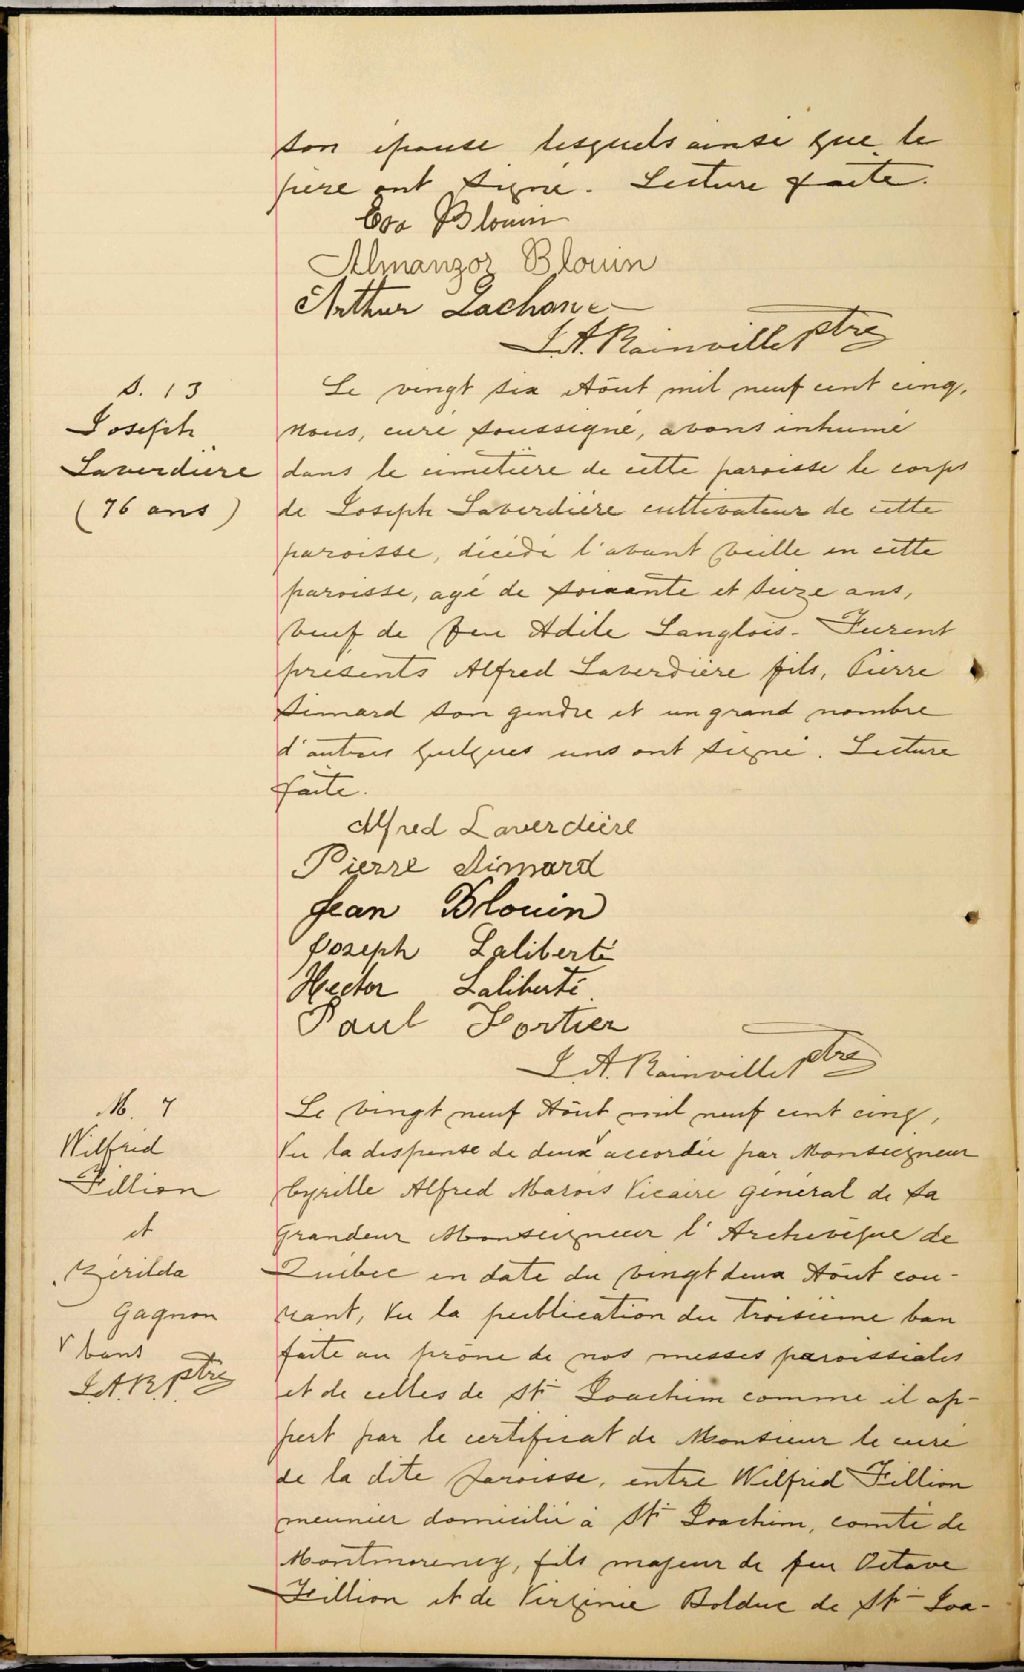 son épouse lesquels ainsi que le
père ont signé. Lecture faite.
Eva Blouin
Almanzor Blouin
Arthur Lachance
J. A. Rainville Ptre
S. 13
Joseph
Laverdière
(76 ans)
Le vingt six Août mil neuf cent cinq,
nous, curé soussigné, avons inhumé
dans le cimetière de cette paroisse le corps
de Joseph Laverdière cultivateur de cette
paroisse, décédé l'avant veille en cette
paroisse, agé de soixante et seize ans,
veuf de feu Adile Langlois. Furent
présents Alfred Laverdière fils, Pierre
Simard son gendre et un grand nombre
d'autres quelques uns ont signé. Lecture
faite.
Alfred Laverdière
Pierre Simard
Jean Blouin
Joseph Laliberté
Hector Laliberté
Paul Fortier
J. A. Rainville Ptre
M. 7
Wilfrid
Fillion
et
Zérilda
Gagnon
v bans
J.A.R. Ptre
Le vingt neuf Août mil neuf cent cinq,
Vu la dispense de deux v accordée par Monseigneur
Cyrille Alfred Marois Vicaire général de Sa
Grandeur Monseigneur l'Archevêque de
Québec en date du vingt deux Août cou-
rant, Vu la publication du troisième ban
faite au prône de nos messes paroissiales
et de celles de St Joachim comme il ap-
pert par le certificat de Monsieur le curé
de la dite paroisse, entre Wilfrid Fillion
meunier domicilié à St Joachim, comté de
Montmorency, fils majeur de feu Octave
Fillion et de Virginie Bolduc de St Joa-